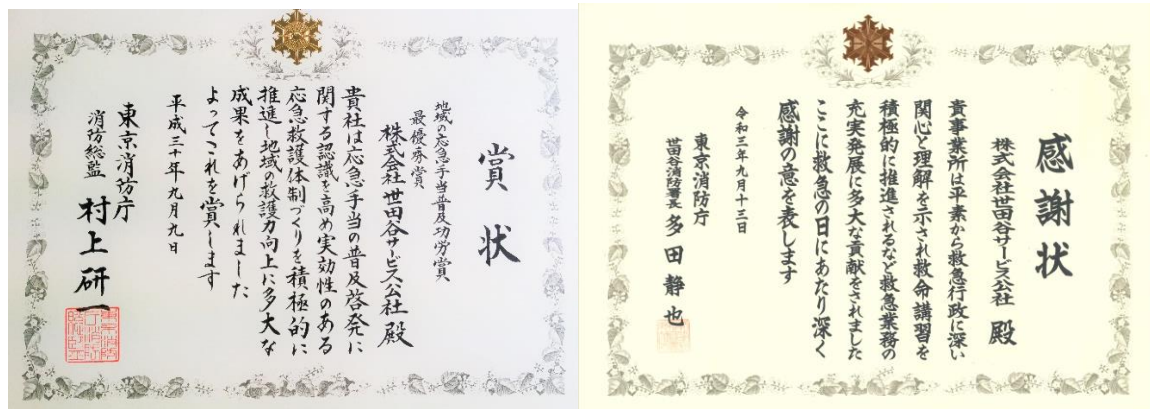 賞状
地域の応急手当普及功労賞
最優秀賞
株式会社 世田谷サービス公社 殿
貴社は応急手当の普及啓発に
関する認識を高め実効性のある
応急救護体制づくりを積極的に
推進し地域の救護力向上に多大な
成果をあげられました
よってこれを賞します
平成三十年九月九日
東京消防庁
消防総監 村上研一
感謝状
株式会社世田谷サービス公社 殿
貴事業所は平素から救急行政に深い
関心と理解を示され救命講習を
積極的に推進されるなど救急業務の
充実発展に多大な貢献をされました
ここに救急の日にあたり深く
感謝の意を表します
令和三年九月十三日
東京消防庁
世田谷消防署長 多田静也